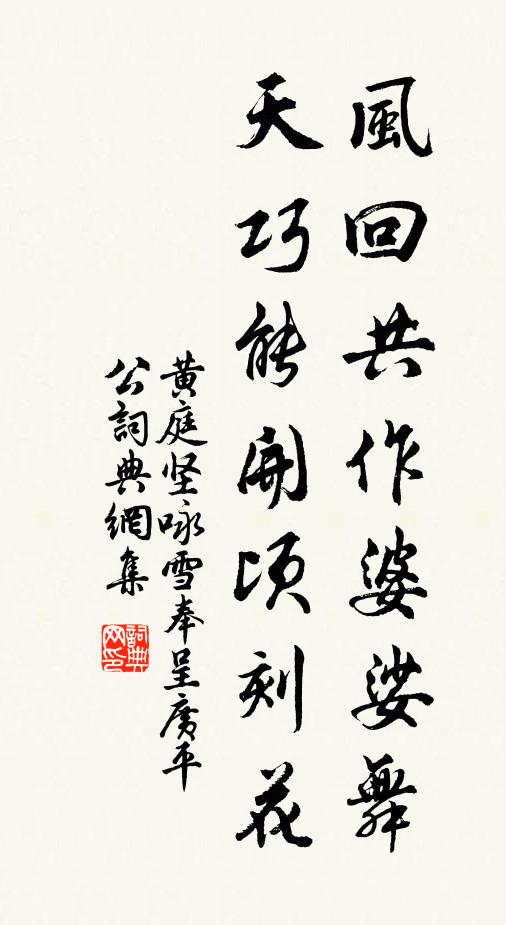 風回共作婆娑舞
天巧能開頃刻花
黄庭坚咏雪奉呈廣平
公詞典網集
詞典
网印